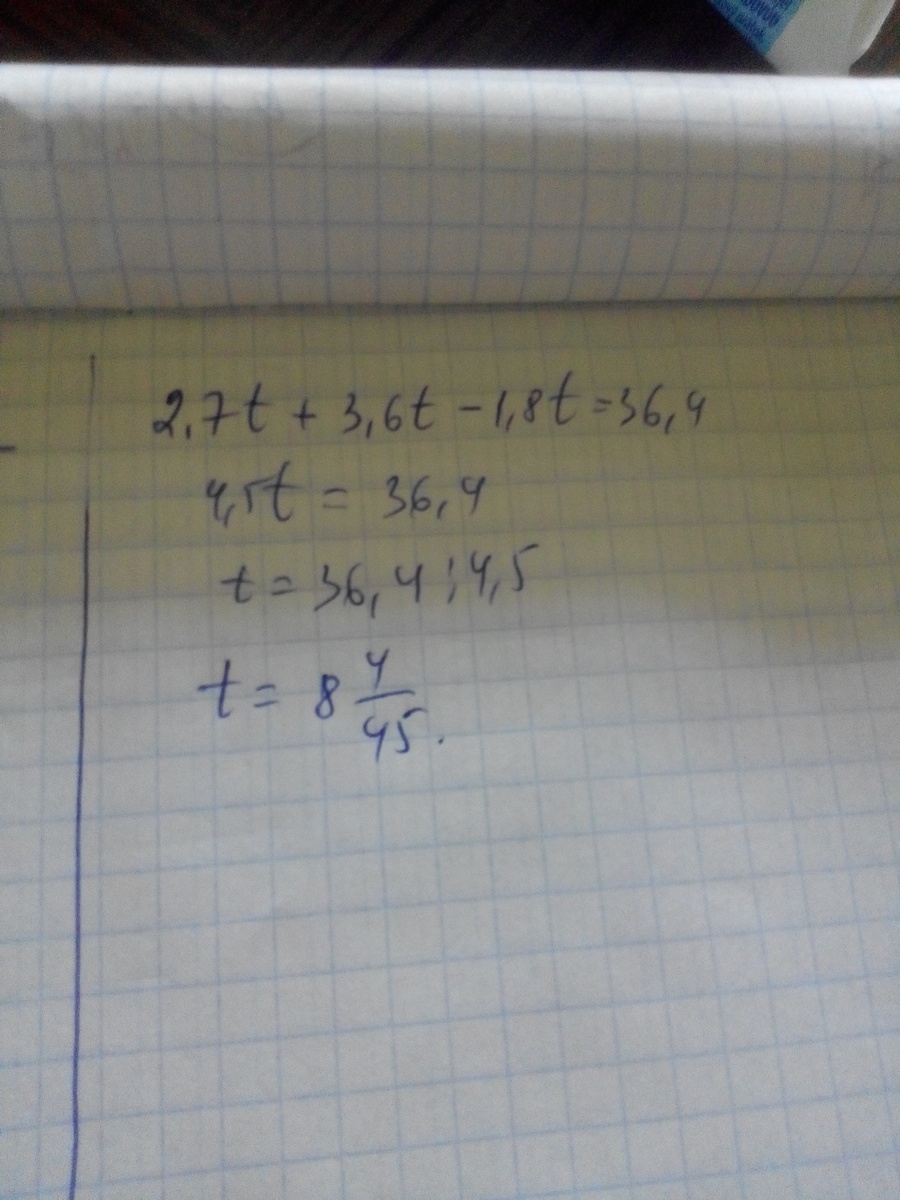 2,7t + 3,6t - 1,8t = 36,4
4,5t = 36,4
t = 36,4 : 4,5
t = 8 4/45.